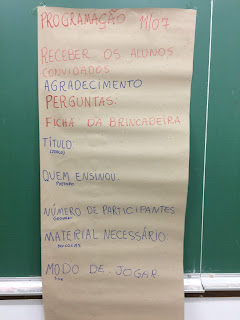 PROGRAMAÇÃO 11/07
RECEBER OS ALUNOS
CONVIDADOS
AGRADECIMENTO
PERGUNTAS.
FICHA DA BRINCADEIRA
TÍTULO
QUEM ENSINOU
NÚMERO DE PARTICIPANTES
MATERIAL NECESSÁRIO
MODO DE JOGAR